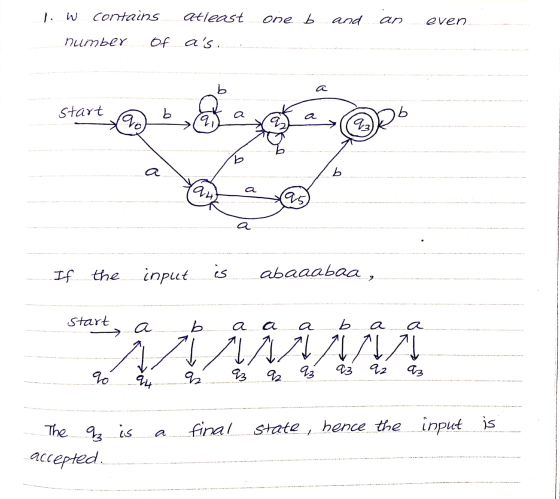 1. W contains atleast one b and an even
number of a's.
a
b
start q0 b q1 a q2 a q3 b
b
b
a b
q4 a q5
a
If the input is abaaabaa,
start a b a a a b a a
q0 q4 q2 q3 q2 q3 q3 q2 q3
The q3 is a final state, hence the input is
accepted.